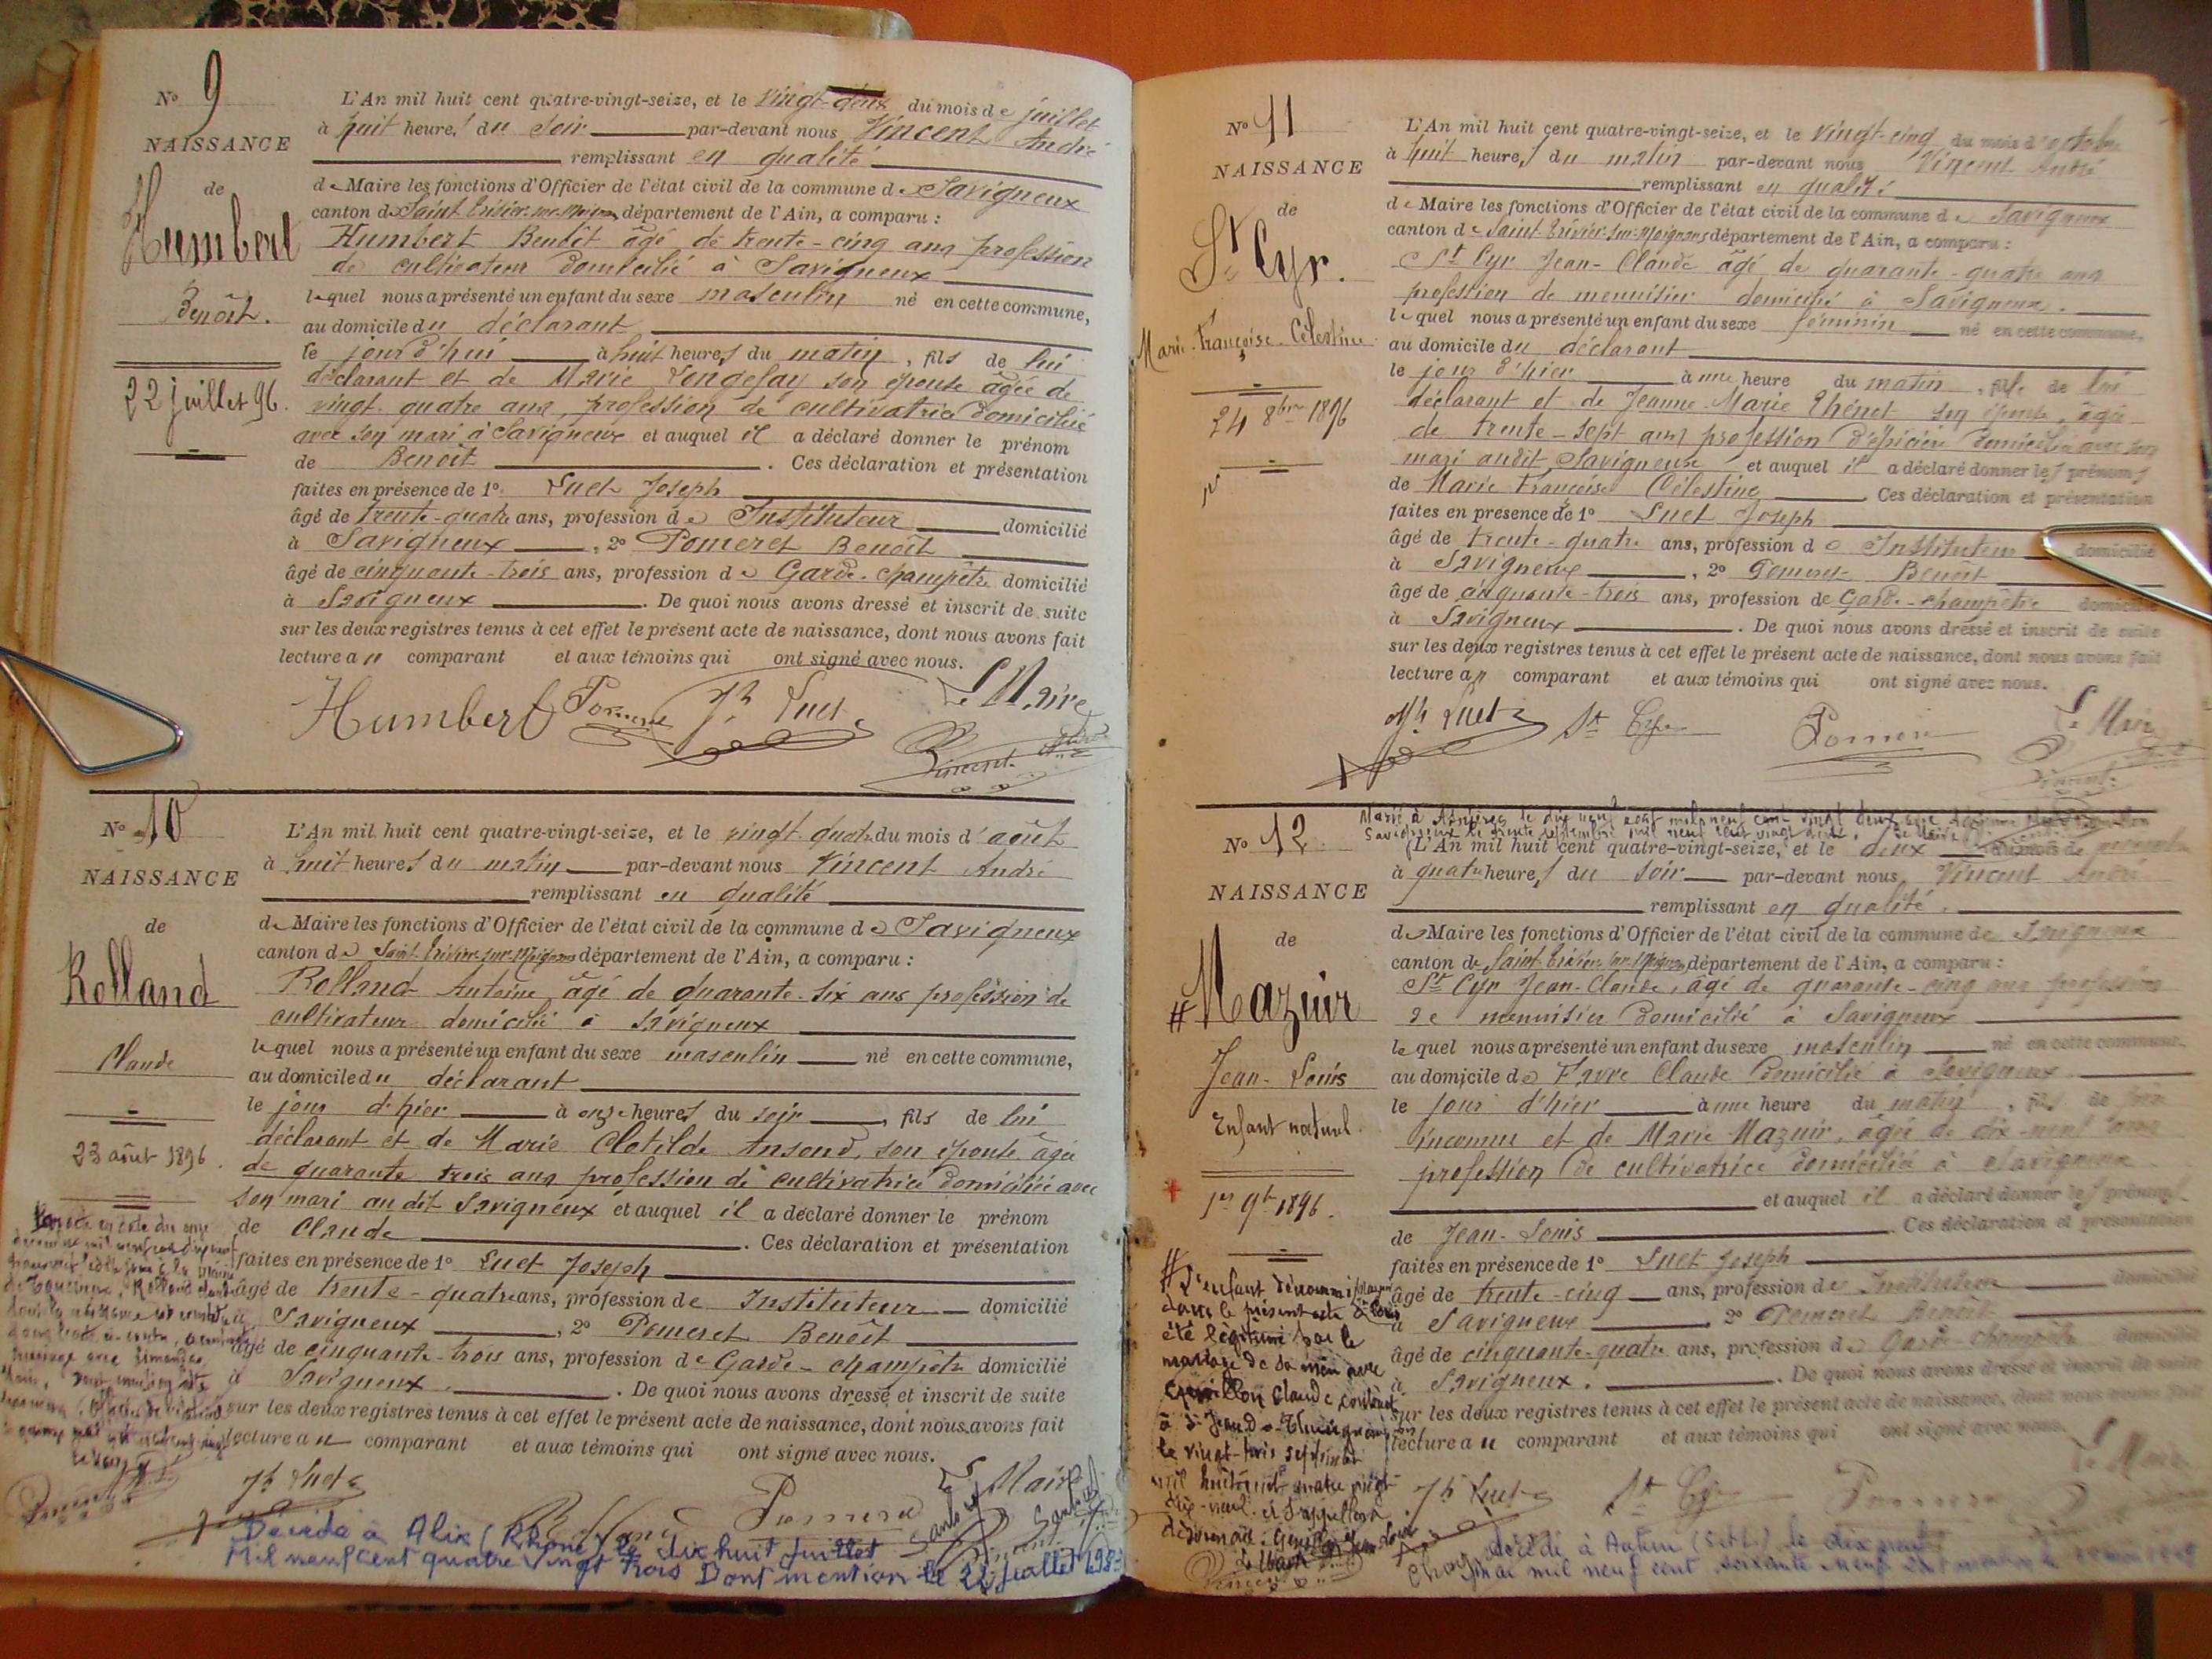 N° 9
NAISSANCE
de
Humbert
Benoît.
22 juillet 96.
L'An mil huit cent quatre-vingt-seize, et le vingt-deux du mois de juillet
à huit heures du soir par-devant nous Vincent André
remplissant en qualité
de Maire les fonctions d'Officier de l'état civil de la commune de Savigneux
canton de Saint Trivier-sur-Moignans département de l'Ain, a comparu :
Humbert Benoît âgé de trente-cinq ans profession
de cultivateur domicilié à Savigneux
lequel nous a présenté un enfant du sexe masculin né en cette commune,
au domicile du déclarant
le jour d'hui à huit heures du matin, fils de lui
déclarant et de Marie son épouse âgée de
vingt-quatre ans, profession de cultivatrice domiciliée
avec son mari à Savigneux et auquel il a déclaré donner le prénom
de Benoit. Ces déclaration et présentation
faites en présence de 1° Luet Joseph
âgé de trente-quatre ans, profession de Instituteur domicilié
à Savigneux, 2° Pomeret Benoît
âgé de cinquante-trois ans, profession de Garde-champêtre domicilié
à Savigneux. De quoi nous avons dressé et inscrit de suite
sur les deux registres tenus à cet effet le présent acte de naissance, dont nous avons fait
lecture au comparant et aux témoins qui ont signé avec nous.
Humbert Pomeret Jh Luet Le Maire
Vincent
N° 10
NAISSANCE
de
Rolland
Claude
23 août 1896.
L'An mil huit cent quatre-vingt-seize, et le vingt-quatre du mois d'août
à huit heures du matin par-devant nous Vincent André
remplissant en qualité
de Maire les fonctions d'Officier de l'état civil de la commune de Savigneux
canton de Saint Trivier-sur-Moignans département de l'Ain, a comparu :
Rolland Antoine âgé de quarante-six ans profession de
cultivateur domicilié à Savigneux
lequel nous a présenté un enfant du sexe masculin né en cette commune,
au domicile du déclarant
le jour d'hier à onze heures du soir, fils de lui
déclarant et de Marie Clotilde son épouse âgée
de quarante trois ans profession de cultivatrice domiciliée avec
son mari au dit Savigneux et auquel il a déclaré donner le prénom
de Claude. Ces déclaration et présentation
faites en présence de 1° Luet Joseph
âgé de trente-quatre ans, profession de Instituteur domicilié
à Savigneux, 2° Pomeret Benoît
âgé de cinquante-trois ans, profession de Garde-champêtre domicilié
à Savigneux. De quoi nous avons dressé et inscrit de suite
sur les deux registres tenus à cet effet le présent acte de naissance, dont nous avons fait
lecture au comparant et aux témoins qui ont signé avec nous.
Jh Luet Rolland Pomeret Le Maire
Décédé à Alix (Rhône) le dix huit juillet
Mil neuf cent quatre vingt trois Dont mention le 22 juillet 1983
N° 11
NAISSANCE
de
St Cyr.
Marie-Françoise-Célestine
24 8bre 1896
L'An mil huit cent quatre-vingt-seize, et le vingt-cinq du mois d'octobre
à huit heures du matin par-devant nous Vincent André
remplissant en qualité
de Maire les fonctions d'Officier de l'état civil de la commune de Savigneux
canton de Saint Trivier-sur-Moignans département de l'Ain, a comparu :
St Cyr Jean-Claude âgé de quarante-quatre ans
profession de menuisier domicilié à Savigneux.
lequel nous a présenté un enfant du sexe féminin né en cette commune,
au domicile du déclarant
le jour d'hier à une heure du matin, fille de lui
déclarant et de Jeanne-Marie Thénet son épouse, âgée
de trente-sept ans profession d'épicière domiciliée avec son
mari audit Savigneux et auquel il a déclaré donner les prénoms
de Marie Françoise Célestine. Ces déclaration et présentation
faites en présence de 1° Luet Joseph
âgé de trente-quatre ans, profession de Instituteur domicilié
à Savigneux, 2° Pomeret Benoît
âgé de cinquante-trois ans, profession de Garde-champêtre domicilié
à Savigneux. De quoi nous avons dressé et inscrit de suite
sur les deux registres tenus à cet effet le présent acte de naissance, dont nous avons fait
lecture au comparant et aux témoins qui ont signé avec nous.
Jh Luet St Cyr Pomeret Le Maire
Vincent
Marié à Asnières le dix neuf août mil neuf cent vingt deux avec
Savigneux le trente septembre mil neuf cent vingt deux. Le Maire
N° 12
NAISSANCE
de
# Mazuir
Jean-Louis
Enfant naturel.
1er 9bre 1896.
L'An mil huit cent quatre-vingt-seize, et le deux du mois de novembre
à quatre heures du soir par-devant nous Vincent André
remplissant en qualité.
de Maire les fonctions d'Officier de l'état civil de la commune de Savigneux
canton de Saint Trivier-sur-Moignans département de l'Ain, a comparu :
St Cyr Jean-Claude, âgé de quarante-cinq ans profession
de menuisier domicilié à Savigneux
lequel nous a présenté un enfant du sexe masculin né en cette commune,
au domicile de Favre Claude domicilié à Savigneux
le jour d'hier à une heure du matin, fils de père
inconnu et de Marie Mazuir, âgée de dix neuf ans
profession de cultivatrice domiciliée à Savigneux
et auquel il a déclaré donner les prénoms
de Jean-Louis. Ces déclaration et présentation
faites en présence de 1° Luet Joseph
âgé de trente-cinq ans, profession de Instituteur domicilié
à Savigneux, 2° Pomeret Benoît
âgé de cinquante-quatre ans, profession de Garde champêtre
à Savigneux. De quoi nous avons dressé et inscrit de suite
sur les deux registres tenus à cet effet le présent acte de naissance, dont nous avons fait
lecture au comparant et aux témoins qui ont signé avec nous.
Jh Luet St Cyr Pomeret Le Maire
# L'enfant dénommé
dans le présent acte a
été légitimé par le
mariage de sa mère avec
Claude, contracté
à St Jean-de-Thurigneux
le vingt-trois septembre
mil huit cent quatre vingt
dix-neuf et s'appellera
désormais
Le Maire
Décédé à Autun (S.et L.) le dix neuf
mil neuf cent soixante neuf